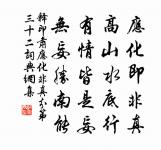 應化即非真
高山水底行
有情皆是
無妄勝南能
釋印肅應化非真分第
三十二詞典網集